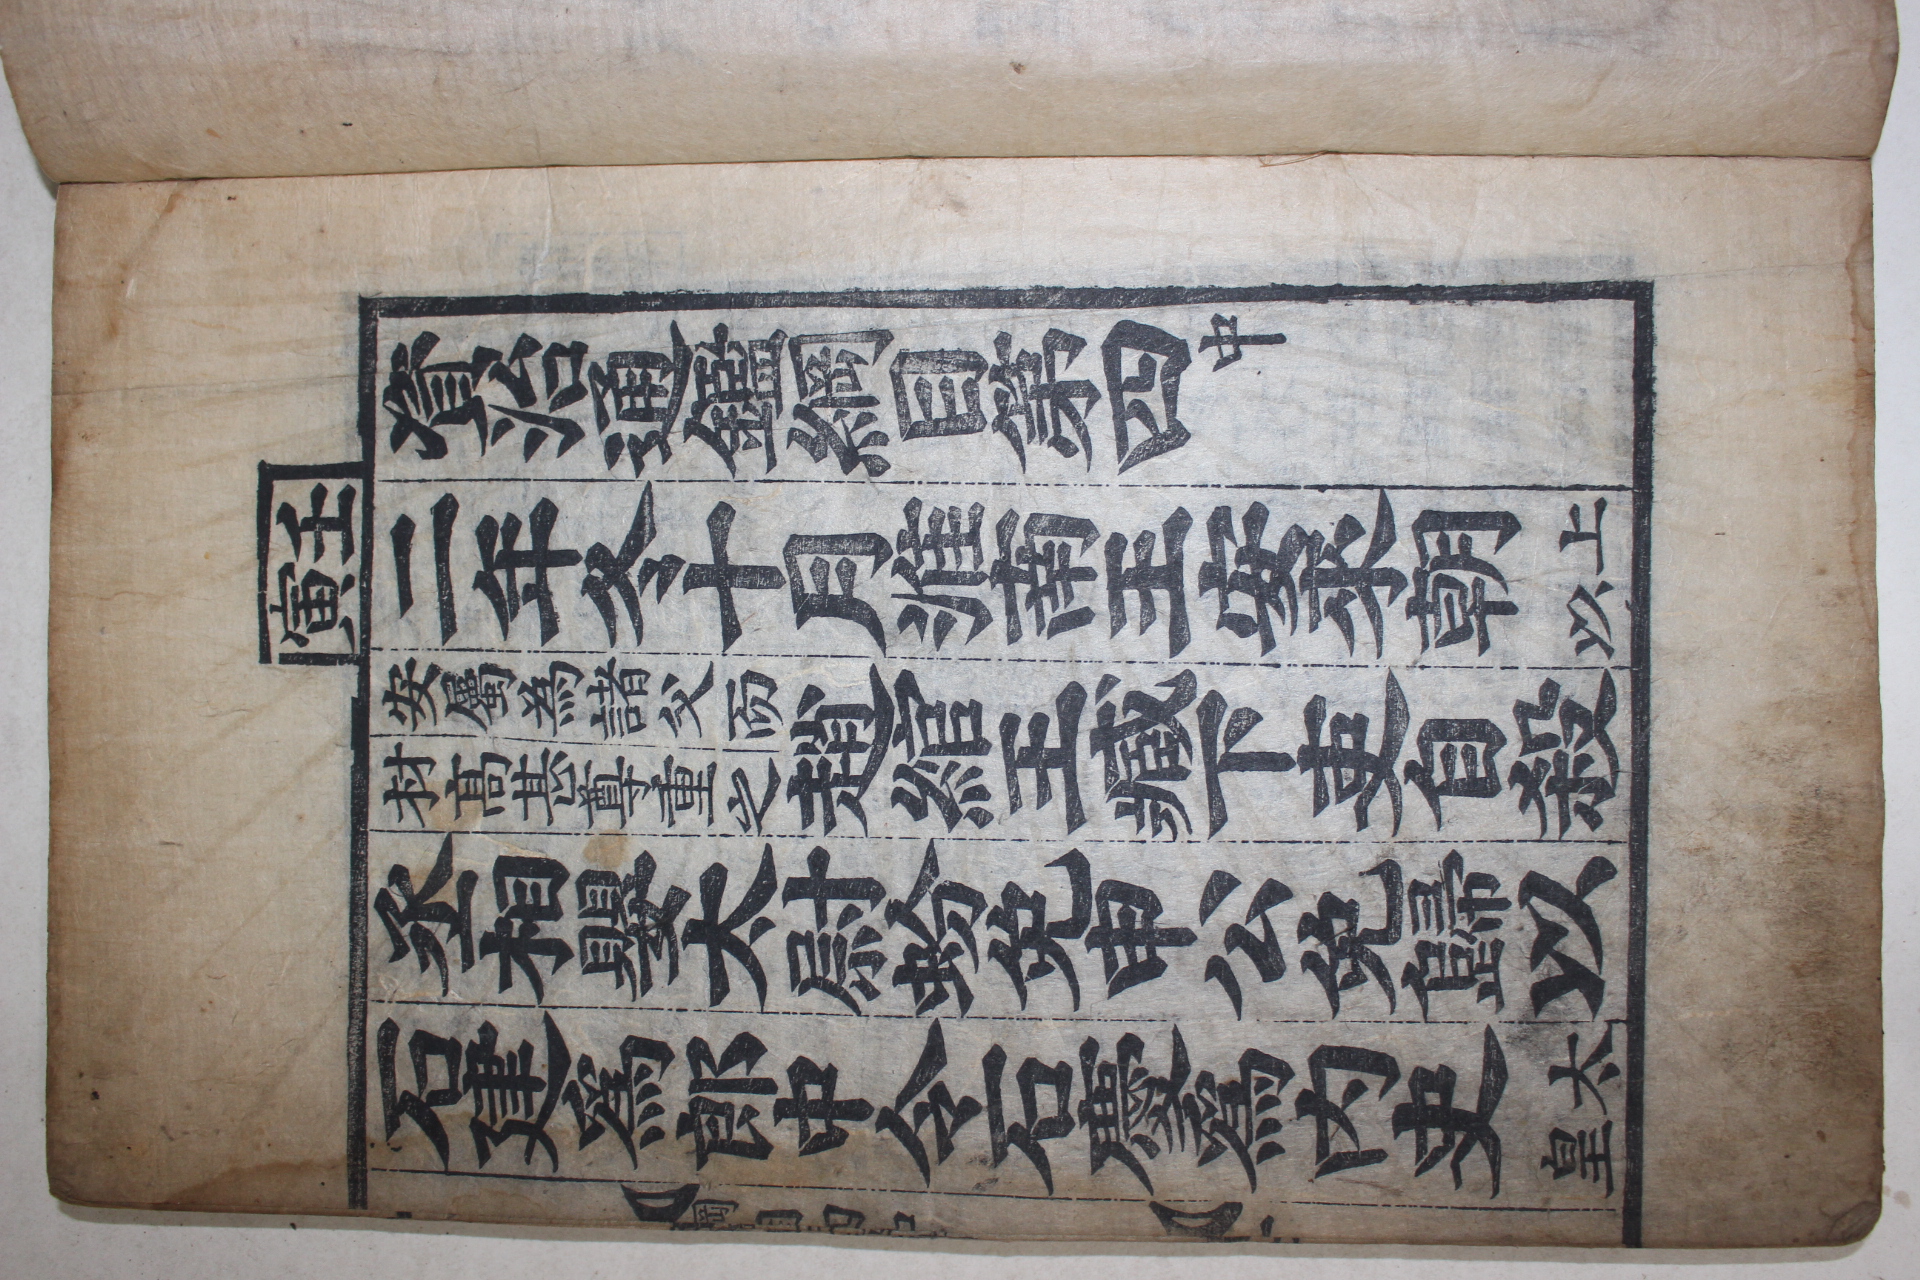 資治通鑑綱目第四中
壬寅
二年冬十月淮南王安來朝上以
安屬為諸父而
材高甚尊重之
趙綰王臧下吏自殺
丞相嬰太尉蚡免申公免歸以
石建爲郎中令石慶爲內史太皇